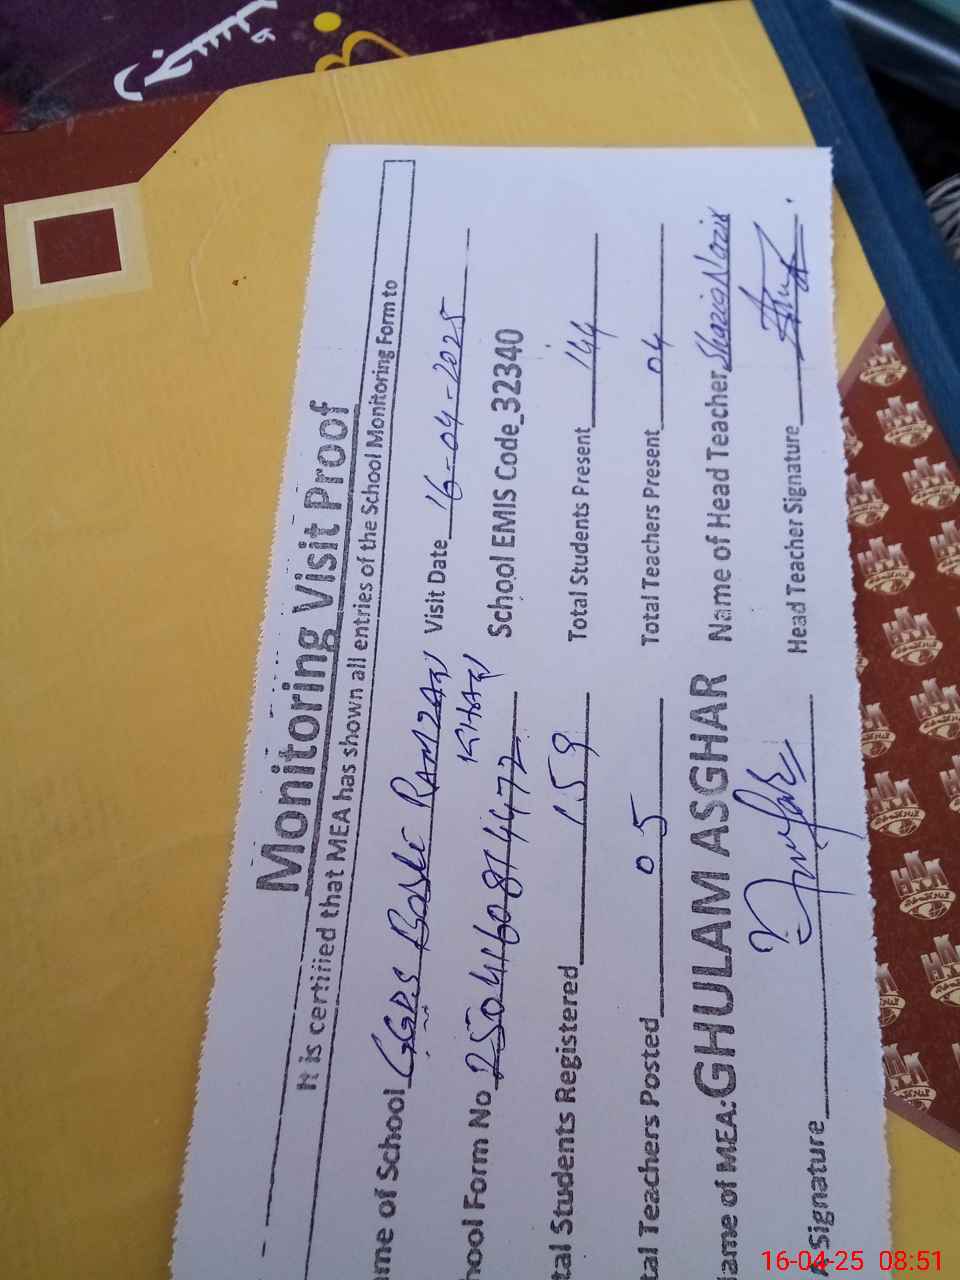 Monitoring Visit Proof
It is certified that MEA has shown all entries of the School Monitoring Form to
ame of School GGPS Basti RAMZAN KHAN Visit Date 16-04-2025
hool Form No 2504160814472 School EMIS Code 32340
tal Students Registered 159 Total Students Present 144
tal Teachers Posted 05 Total Teachers Present 04
ame of MEA: GHULAM ASGHAR Name of Head Teacher Shazia Nazir
A Signature Head Teacher Signature
16-04-25 08:51